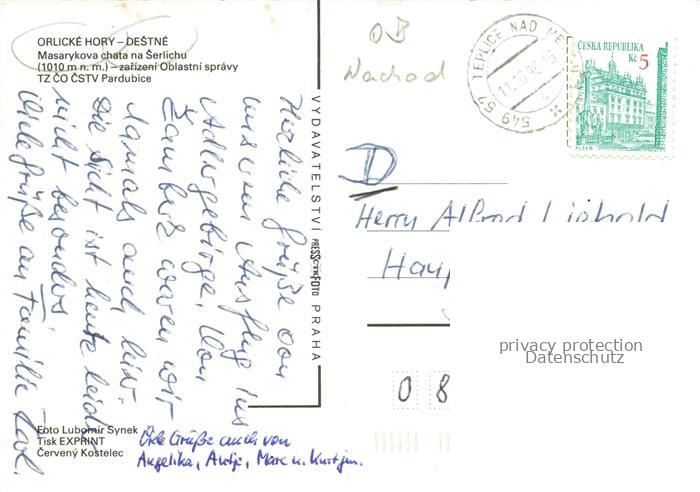 ORLICKÉ HORY – DEŠTNÉ
Masarykova chata na Šerlichu
(1010 m n. m.) – zařízení Oblastní správy
TZ ČO ČSTV Pardubice
Herzliche Grüße von
unserem Ausflug ins
Adlergebirge. Von
Žamberk waren wir
damals auch hier.
Die Sicht ist heute leider
nicht besonders.
Viele Grüße an Familie
Viele Grüße auch von
Angelika, Antje, Marc u. Kurt jun.
Foto Lubomír Synek
Tisk EXPRINT
Červený Kostelec
VYDAVATELSTVÍ PRESSFOTO PRAHA
OB
Nachod
549 57 TEPLICE NAD ME
ČESKA REPUBLIKA
Kč 5
PLZEŇ
D
Herrn Alfred
Haup
08
privacy protection
Datenschutz